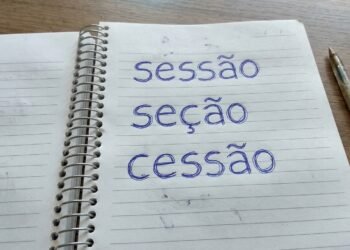 sessão
seção
cessão